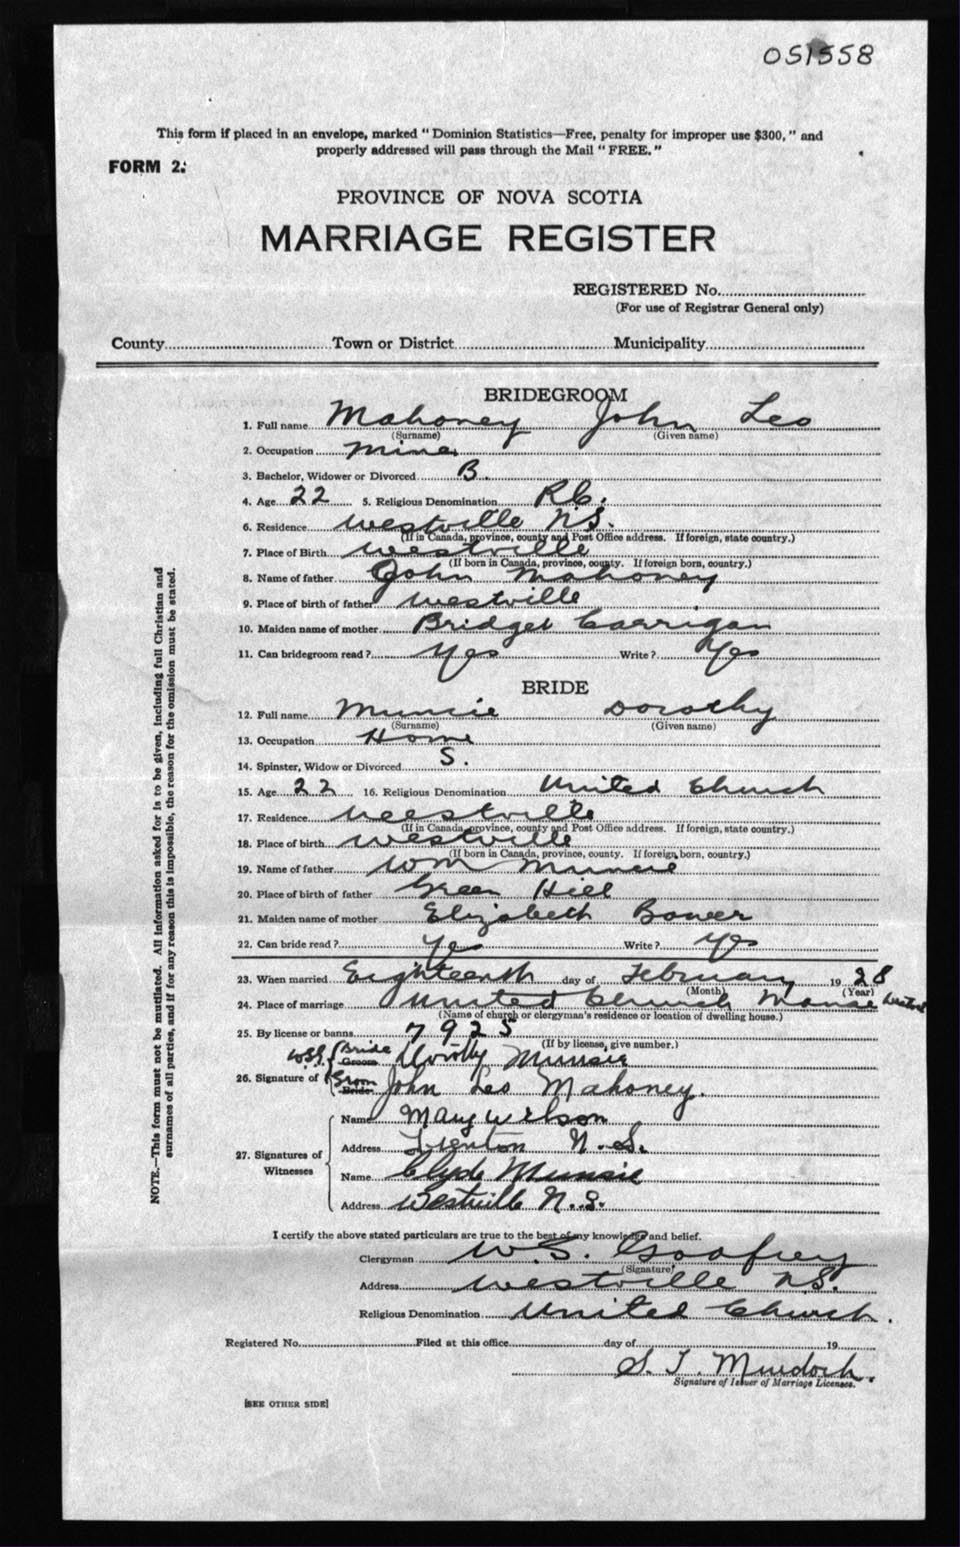 051558
This form if placed in an envelope, marked "Dominion Statistics—Free, penalty for improper use $300," and
properly addressed will pass through the Mail "FREE."
FORM 2.
PROVINCE OF NOVA SCOTIA
MARRIAGE REGISTER
REGISTERED No.
(For use of Registrar General only)
County Town or District Municipality
BRIDEGROOM
1. Full name Mahoney John Leo
(Surname) (Given name)
2. Occupation Miner
3. Bachelor, Widower or Divorced B.
4. Age 22 5. Religious Denomination R.C.
6. Residence Westville N.S.
(If in Canada, province, county and Post Office address. If foreign, state country.)
7. Place of Birth Westville
(If born in Canada, province, county. If foreign born, country.)
8. Name of father John Mahoney
9. Place of birth of father Westville
10. Maiden name of mother Bridget Carrigan
11. Can bridegroom read? Yes Write? Yes
BRIDE
12. Full name Munsie Dorothy
(Surname) (Given name)
13. Occupation Home
14. Spinster, Widow or Divorced S.
15. Age 22 16. Religious Denomination United Church
17. Residence Westville
(If in Canada, province, county and Post Office address. If foreign, state country.)
18. Place of birth Westville
(If born in Canada, province, county. If foreign born, country.)
19. Name of father Wm Munsie
20. Place of birth of father Green Hill
21. Maiden name of mother Elizabeth Bower
22. Can bride read? Yes Write? Yes
23. When married Eighteenth day of February 19 28
(Month) (Year)
24. Place of marriage United Church Manse Westville
(Name of church or clergyman's residence or location of dwelling house.)
25. By license or banns 7925
(If by license, give number.)
W.S.G. Bride Groom Dorothy Munsie
26. Signature of Groom Bride John Leo Mahoney.
Name Mary Wilson
Address Trenton N.S.
27. Signatures of Witnesses
Name Clyde Munsie
Address Westville N.S.
I certify the above stated particulars are true to the best of my knowledge and belief.
Clergyman W.S. Godfrey
(Signature)
Address Westville N.S.
Religious Denomination United Church.
Registered No. Filed at this office day of 19
S. T. Murdoch.
Signature of Issuer of Marriage Licenses.
[SEE OTHER SIDE]
NOTE.—This form must not be mutilated. All information asked for is to be given, including full Christian and
surnames of all parties, and if for any reason this is impossible, the reason for the omission must be stated.